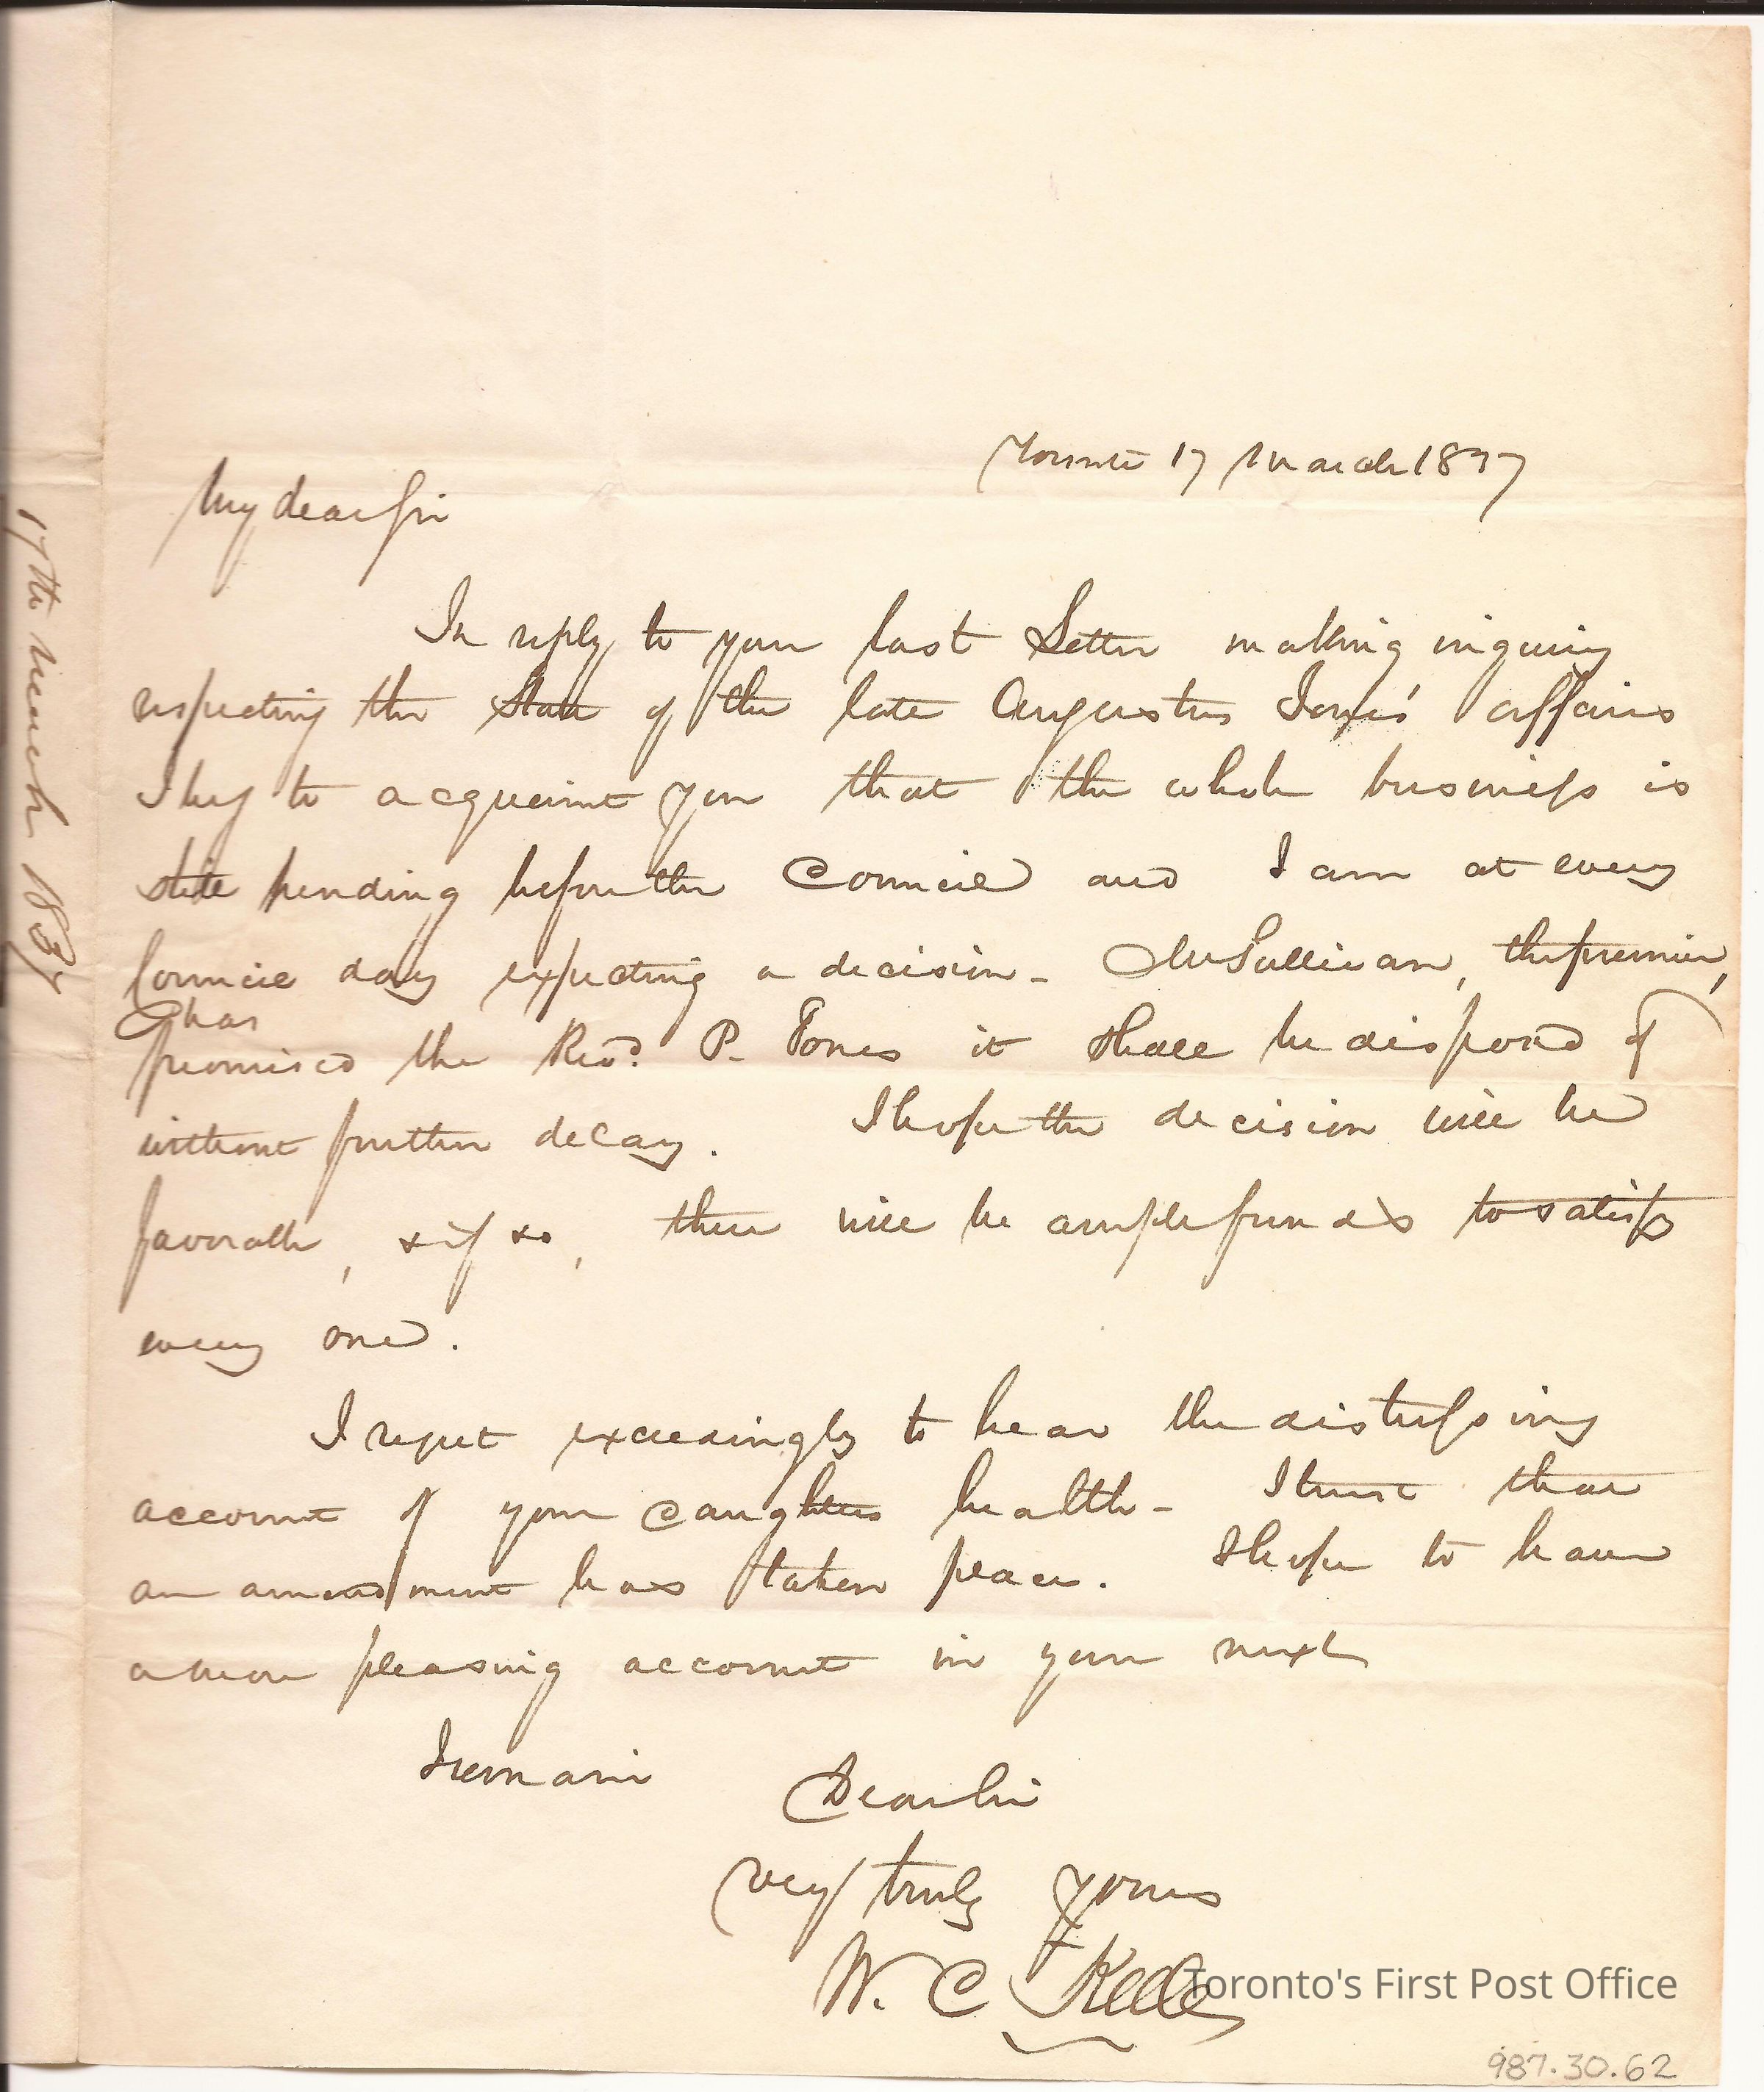 Toronto 17 March 1837
My dear Sir
In reply to your last Letter making inquiry
respecting the State of the late Augustus Jones' affairs
I beg to acquaint you that the whole business is
still pending before the Council and I am at every
Council day expecting a decision - Mr Sullivan, the premier,
has
promised the Revd. P. Jones it shall be disposed of
without further delay. I hope the decision will be
favorable, & if so, there will be ample funds to satisfy
every one.
I regret exceedingly to hear the distressing
account of your daughters health - I trust that
an amendment has taken place. I hope to have
a more pleasing account in your next
I remain Dear Sir
very truly yours
W. C. Keele
17th March 1837
Toronto's First Post Office
987.30.62